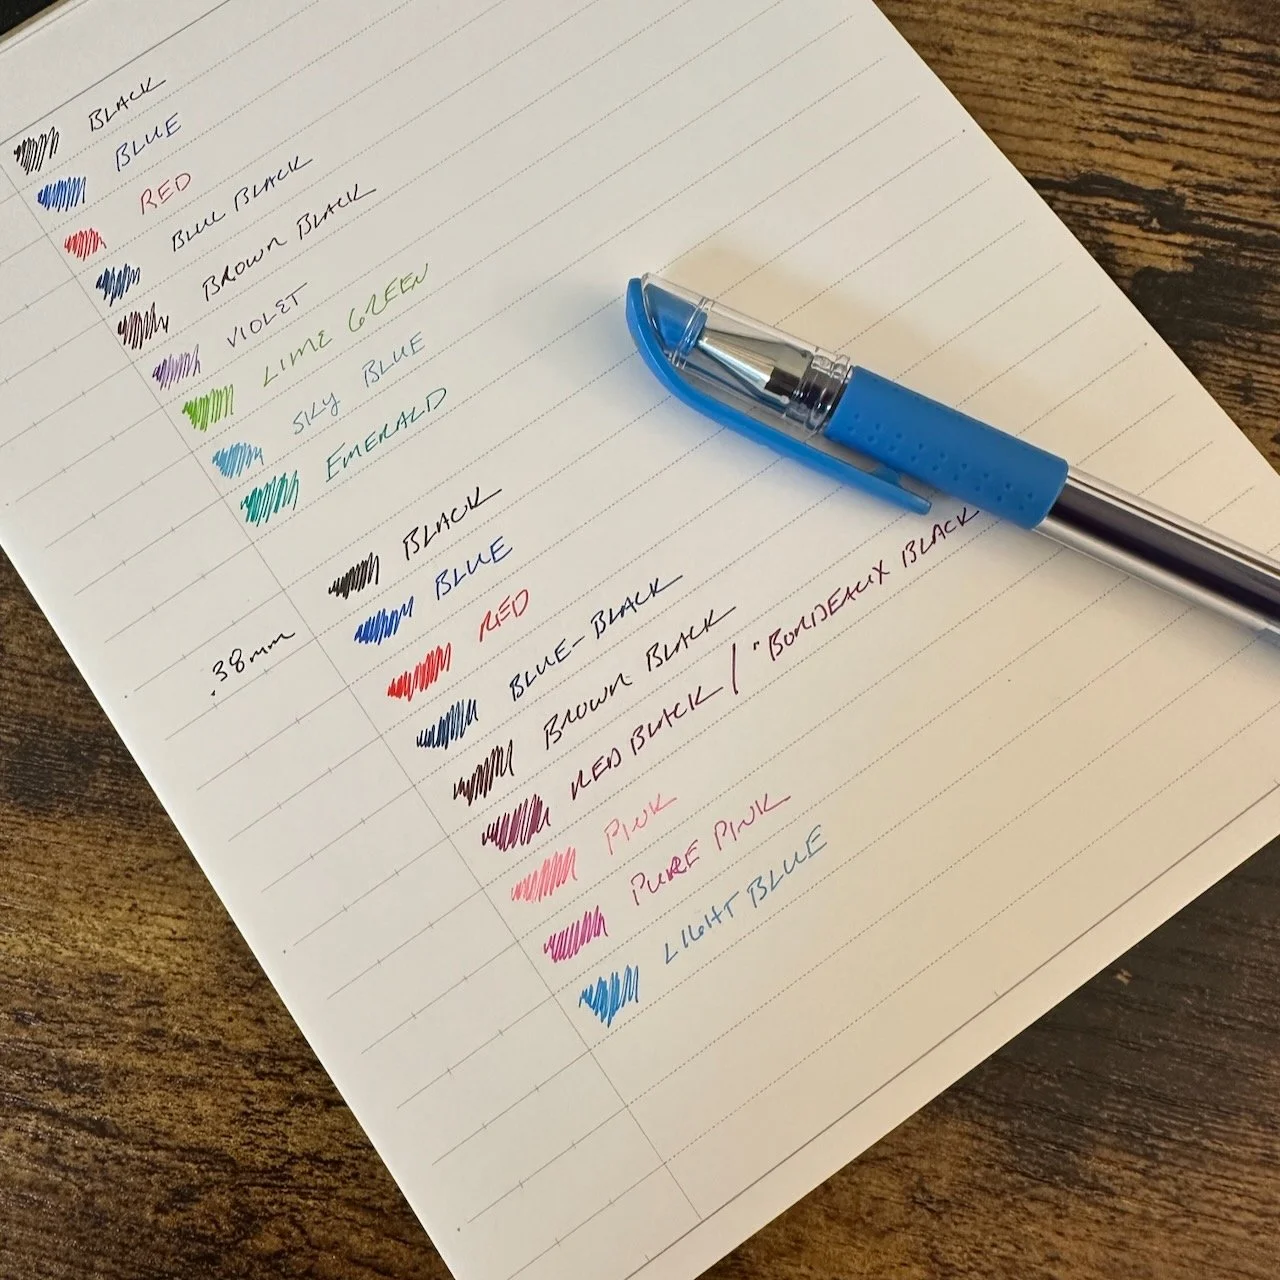 BLACK
BLUE
RED
BLUE BLACK
BROWN BLACK
VIOLET
LIME GREEN
SKY BLUE
EMERALD
.38mm
BLACK
BLUE
RED
BLUE-BLACK
BROWN BLACK
RED BLACK / "BORDEAUX BLACK
PINK
PURE PINK
LIGHT BLUE